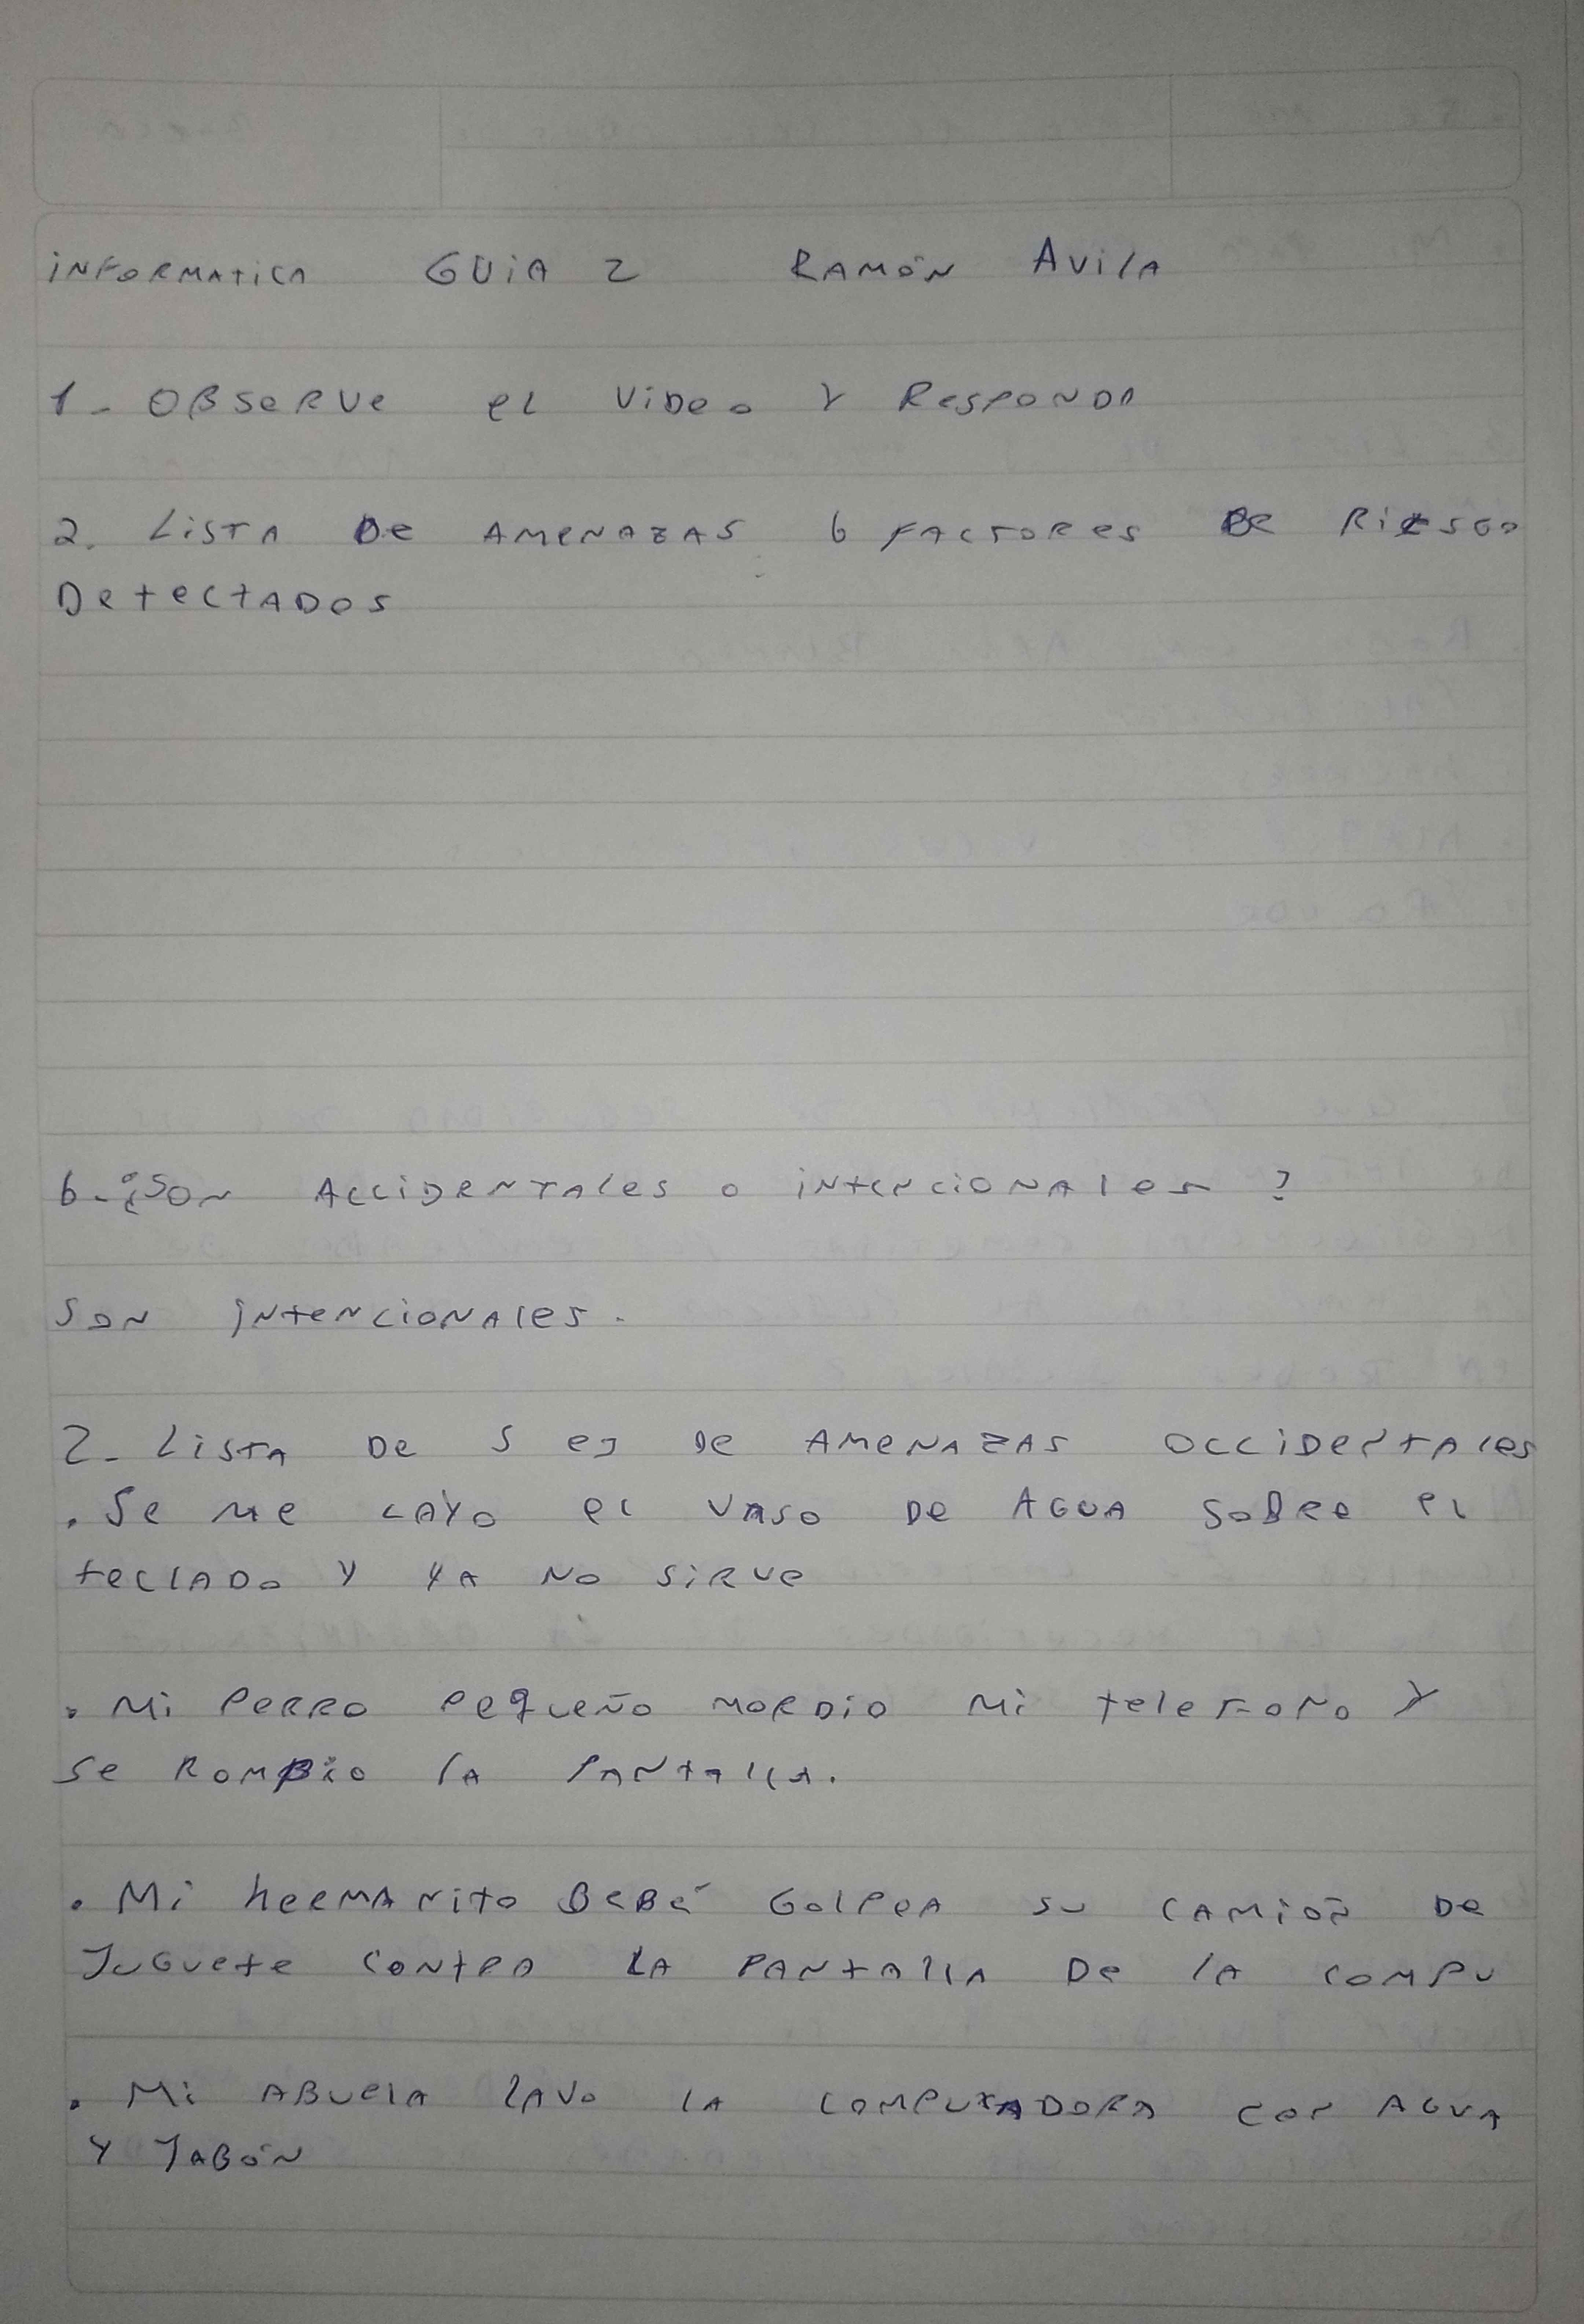 INFORMATICA GUIA 2 RAMÓN AVILA
1- OBSERVE EL VIDEO Y RESPONDA
2. LISTA DE AMENAZAS 6 FACTORES DE RIESGO
DETECTADOS
6-¿SON ACCIDENTALES O INTENCIONALES ?
SON INTENCIONALES.
2- LISTA DE 5 EJ DE AMENAZAS OCCIDENTALES
. SE ME CAYO EL VASO DE AGUA SOBRE EL
TECLADO Y YA NO SIRVE
. MI PERRO PEQUEÑO MORDIO MI TELEFONO Y
SE ROMPIO LA PANTALLA.
. MI HERMANITO BEBÉ GOLPEA SU CAMIÓN DE
JUGUETE CONTRA LA PANTALLA DE LA COMPU
. MI ABUELA LAVO LA COMPUTADORA CON AGUA
Y JABÓN